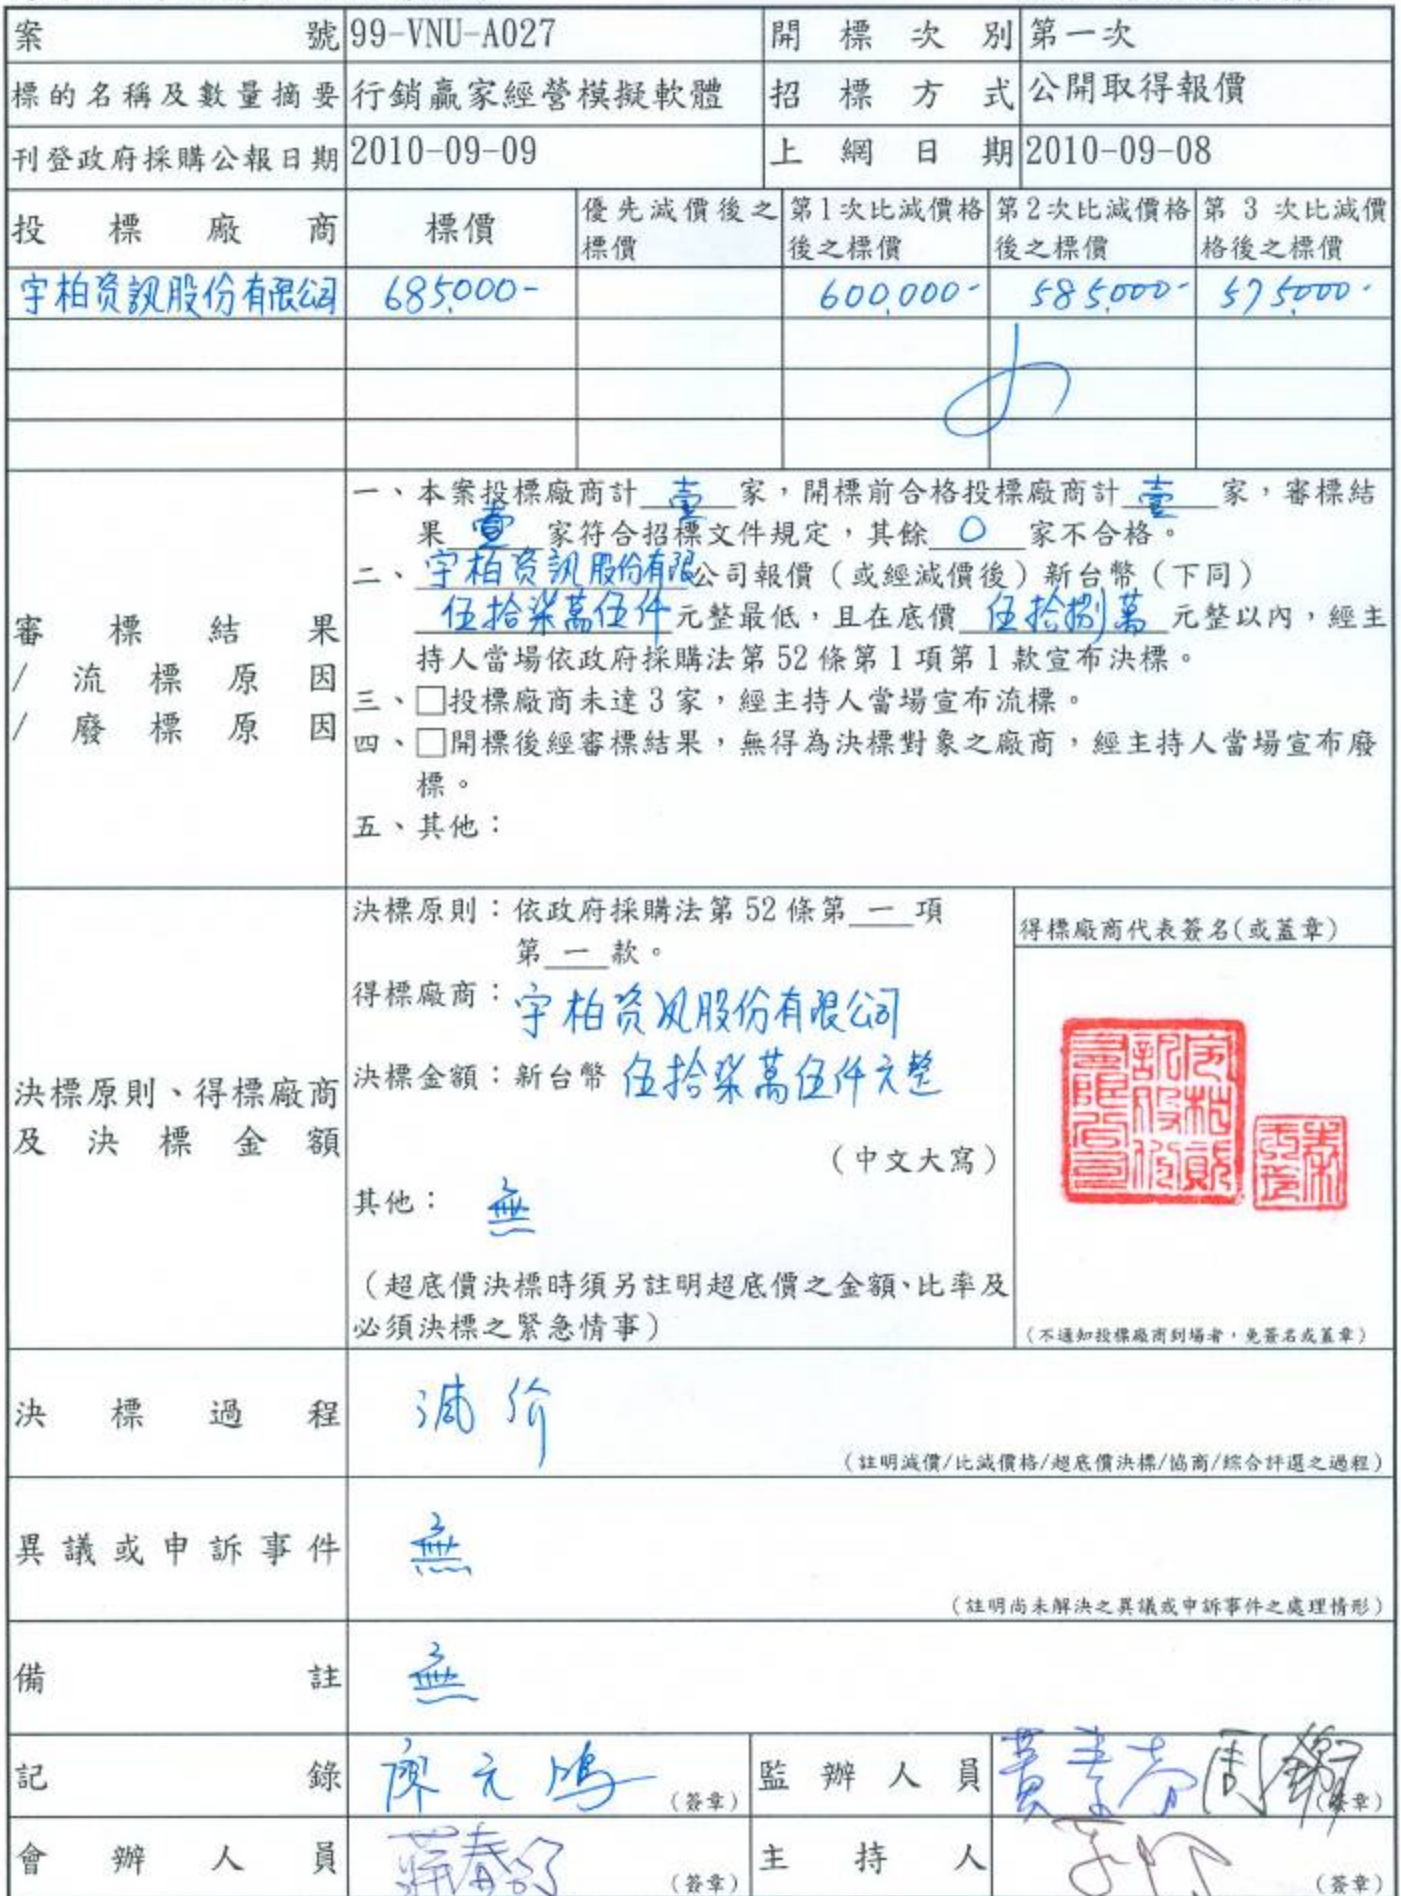 案號 99-VNU-A027 開標次別 第一次
標的名稱及數量摘要 行銷贏家經營模擬軟體 招標方式 公開取得報價
刊登政府採購公報日期 2010-09-09 上網日期 2010-09-08
投標廠商 標價 優先減價後之標價 第1次比減價格後之標價 第2次比減價格後之標價 第3次比減價格後之標價
宇柏资訊股份有限公司 685,000- 600,000- 585,000- 575,000-
審標結果
/流標原因
/廢標原因
一、本案投標廠商計 壹 家,開標前合格投標廠商計 壹 家,審標結
果 壹 家符合招標文件規定,其餘 0 家不合格。
二、宇柏资訊股份有限公司報價(或經減價後)新台幣(下同)
伍拾柒萬伍仟 元整最低,且在底價 伍拾捌萬 元整以內,經主
持人當場依政府採購法第 52 條第 1 項第 1 款宣布決標。
三、□投標廠商未達 3 家,經主持人當場宣布流標。
四、□開標後經審標結果,無得為決標對象之廠商,經主持人當場宣布廢
標。
五、其他:
決標原則、得標廠商
及決標金額
決標原則:依政府採購法第 52 條第 一 項
第 一 款。
得標廠商:宇柏资訊股份有限公司
決標金額:新台幣 伍拾柒萬伍仟元整
(中文大寫)
其他: 無
(超底價決標時須另註明超底價之金額、比率及
必須決標之緊急情事)
得標廠商代表簽名(或蓋章)
(不通知投標廠商到場者,免簽名或蓋章)
決標過程 減价
(註明減價/比減價格/超底價決標/協商/綜合評選之過程)
異議或申訴事件 無
(註明尚未解決之異議或申訴事件之處理情形)
備註 無
記錄 廖元鴻 (簽章) 監辦人員 (簽章)
會辦人員 (簽章) 主持人 (簽章)